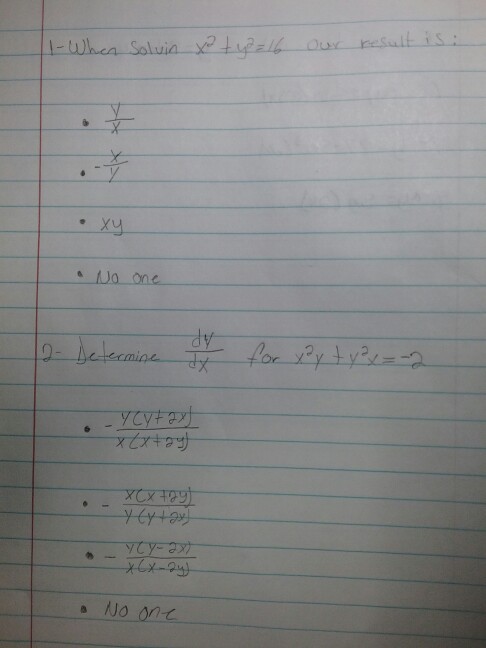 1- When Solvin x² + y² = 16 our result is:
• y/x
• - x/y
• xy
• No one
2- Determine dy/dx for x²y + y²x = -2
• - y(y+2x)/x(x+2y)
• - x(x+2y)/y(y+2x)
• - y(y-2x)/x(x-2y)
• No one